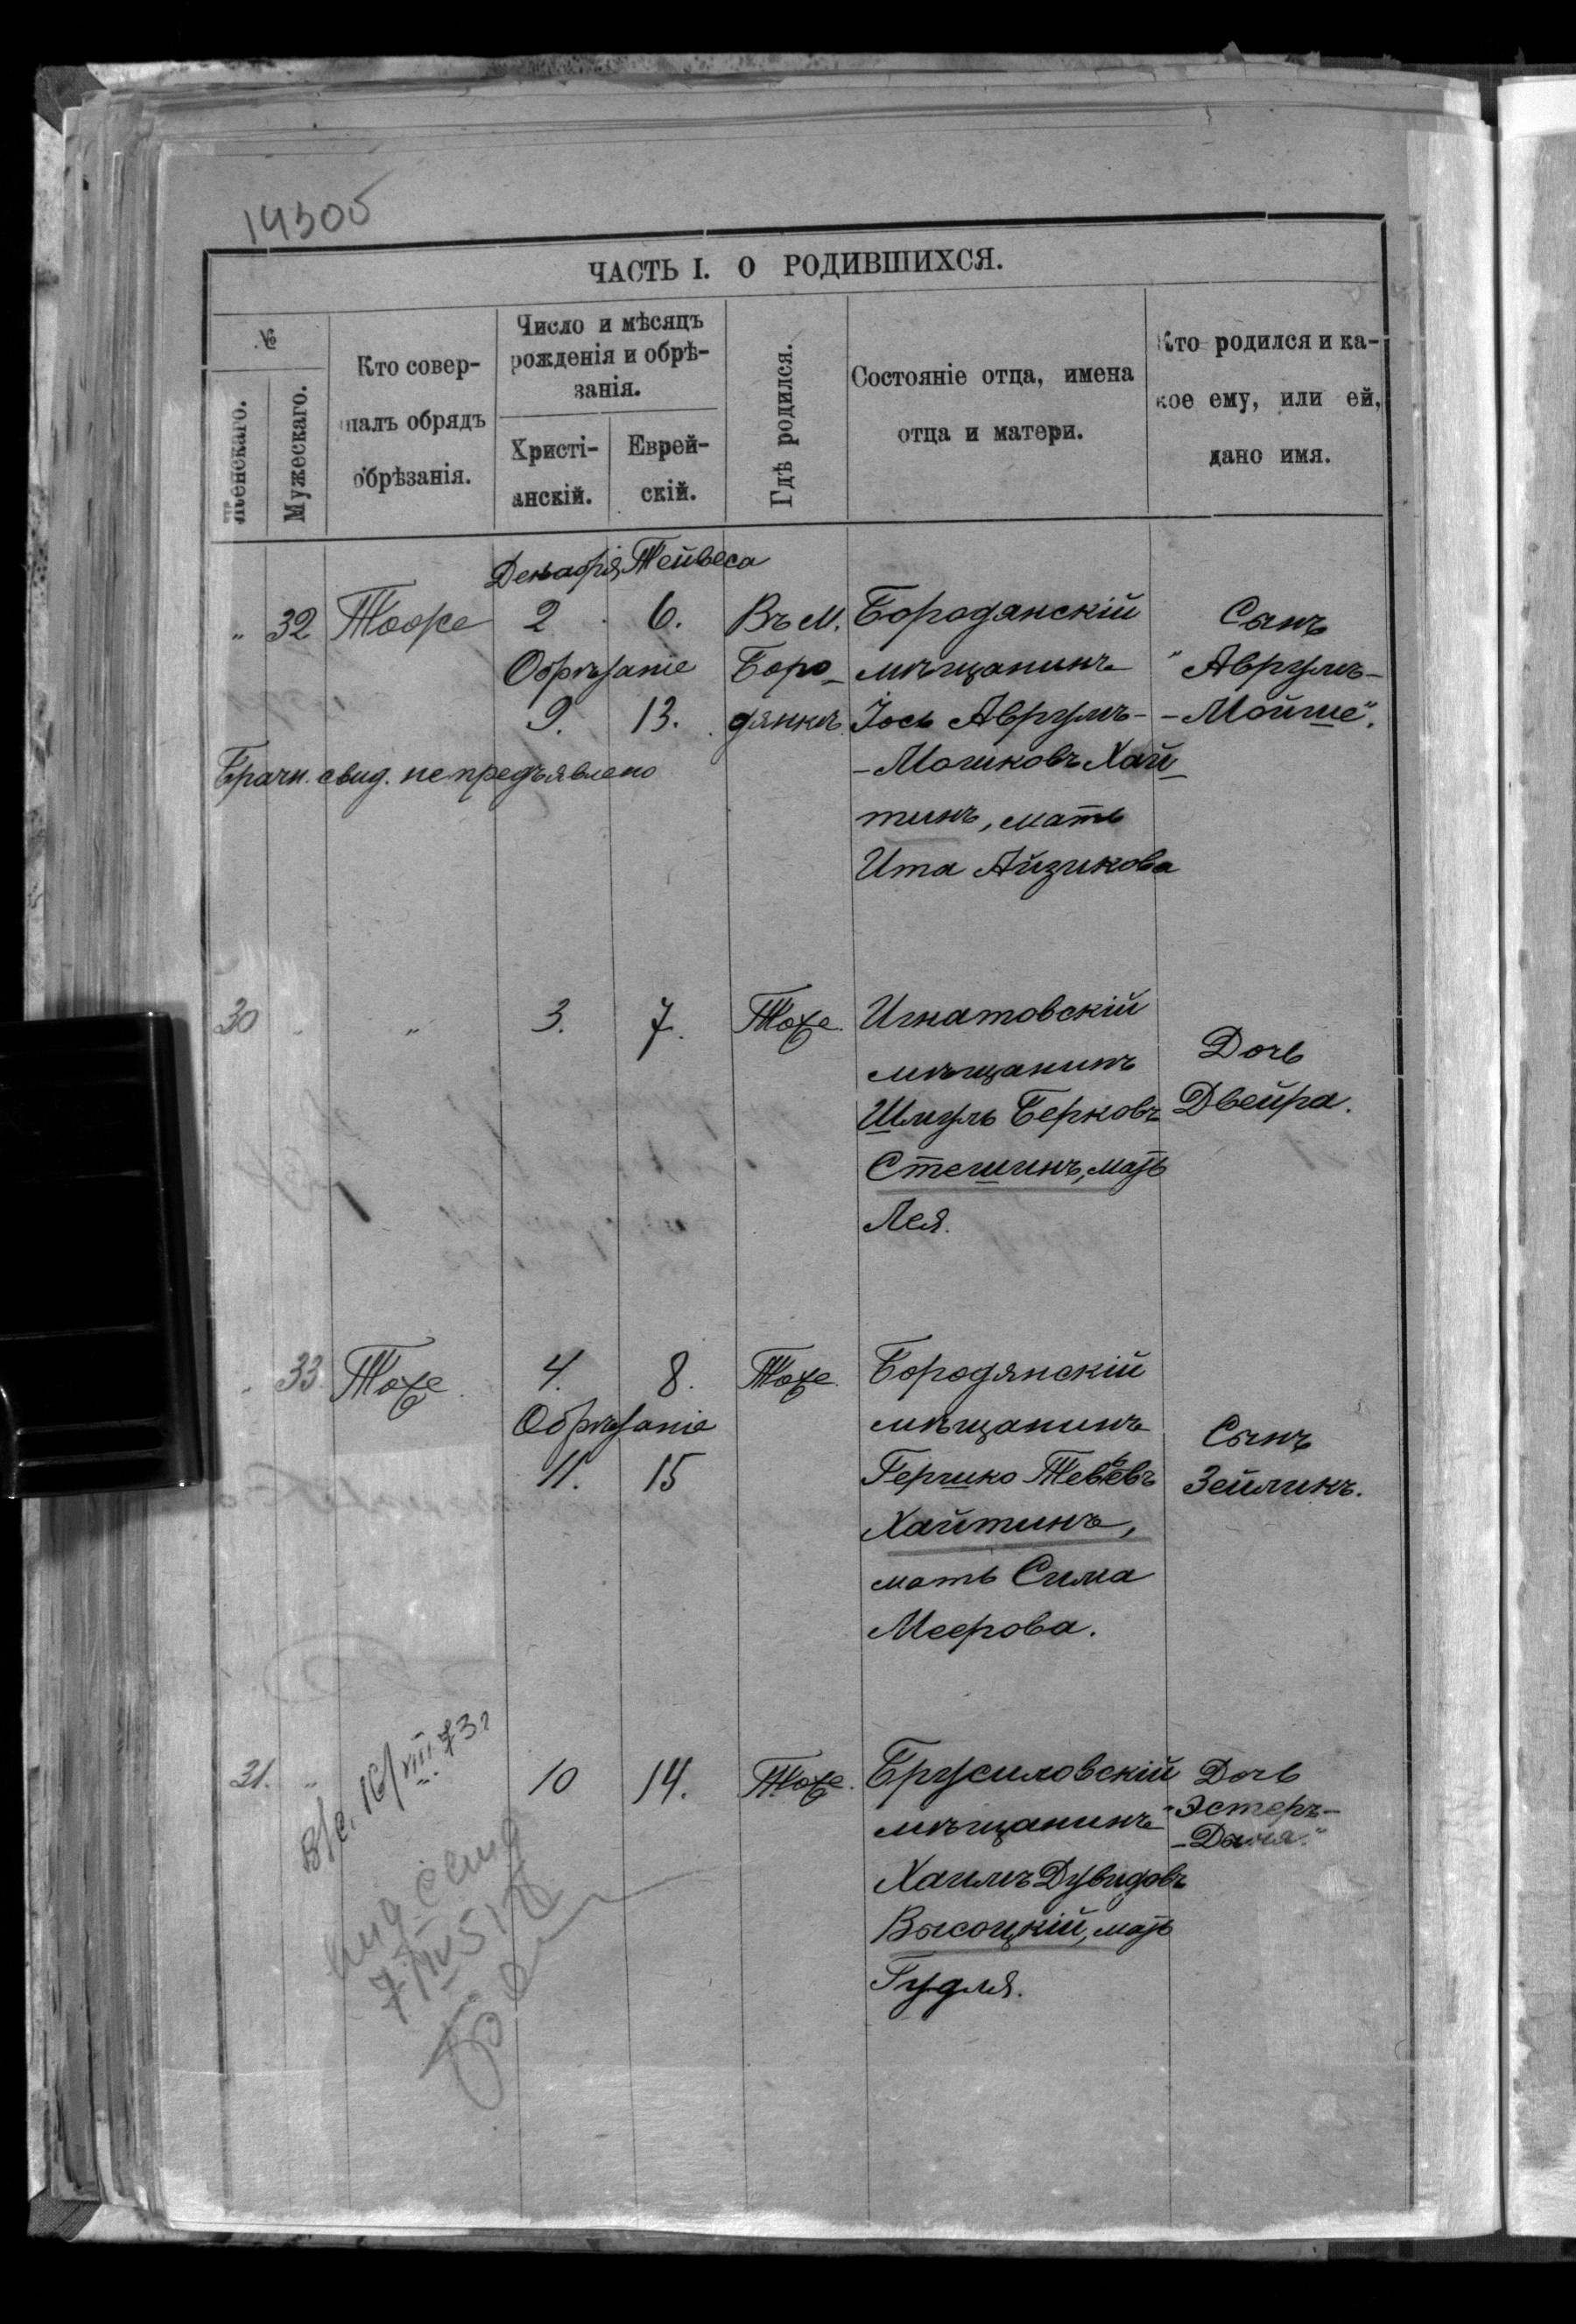 14305
ЧАСТЬ I. О РОДИВШИХСЯ.
№
Женскаго.
Мужескаго.
Кто совер-
шалъ обрядъ
обрѣзанія.
Число и мѣсяцъ
рожденія и обрѣ-
занія.
Христі-
анскій.
Еврей-
скій.
Гдѣ родился.
Состояніе отца, имена
отца и матери.
Кто родился и ка-
кое ему, или ей,
дано имя.
Декабря Тейвеса
" 32 Тоже 2 6. Въ м. Бородянскій Сынъ
Обрѣзаніе Боро- мѣщанинъ "Аврумъ-
9. 13. дянкѣ Іось Аврумъ- -Мойше".
Брачн. свид. не предъявлено -Мошковъ Хай-
тинъ, мать
Ита Айзикова
30 " 3. 7. Тоже. Игнатовскій
мѣщанинъ Дочь
Шмуль Берковъ Двейра.
Стешинъ, мать
Лея.
" 33. Тоже. 4. 8. Тоже. Бородянскій
Обрѣзаніе мѣщанинъ Сынъ
11. 15 Гершко Тевьевъ Зейликъ.
Хайтинъ,
мать Сима
Меерова.
31. " 10 14. Тоже. Брусиловскій Дочь
мѣщанинъ "Эстеръ-
Хаимъ Дувидовъ
Высоцкій, мать
Гудля.
В/с. 16/VIII 73 г